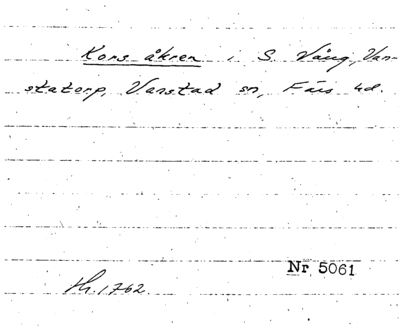 Kors åkren i S. Vång, Van-
statorp, Vanstad sn, Färs hd.
Nr 5061
Hh. 1762.